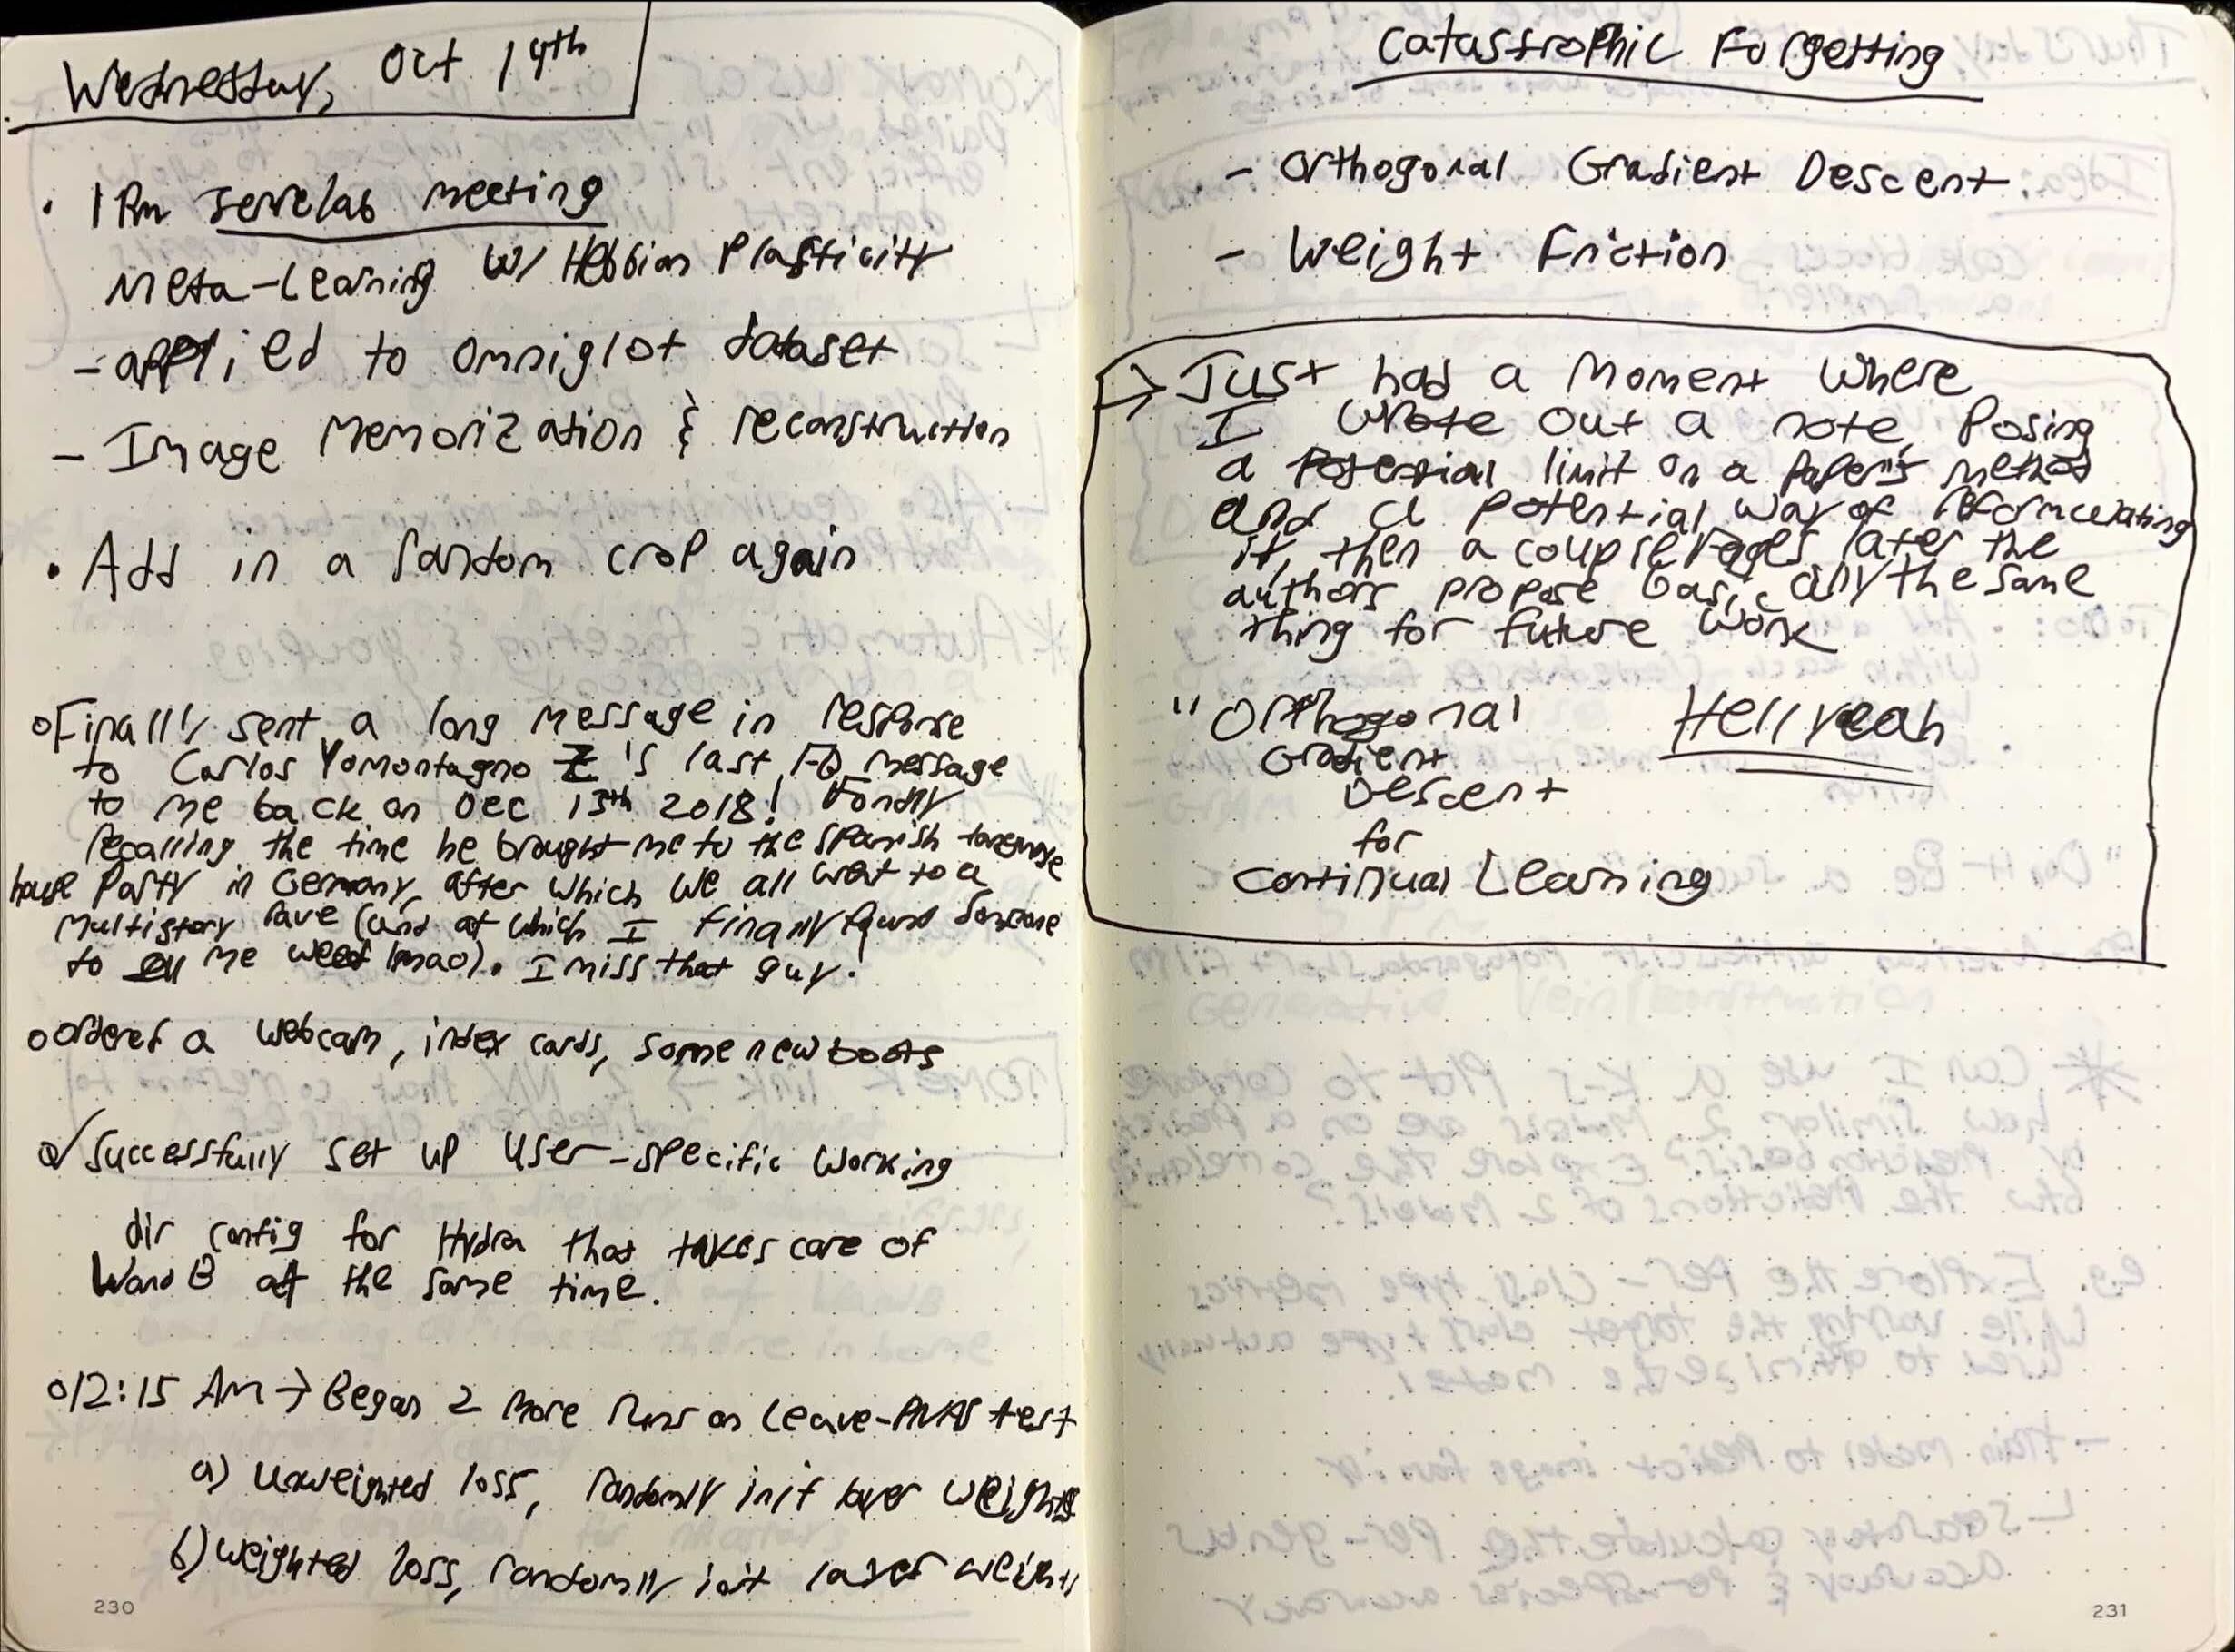 Wednesday, Oct 14th
• 1 PM serrelab meeting
Meta-Learning w/ Hebbian Plasticity
- applied to omniglot dataset
- Image Memorization & reconstruction
• Add in a random crop again
o Finally sent a long message in response
to Carlos Z's last FB message
to me back on Dec 13th 2018! Fondly
recalling the time he brought me to the Spanish
house party in Germany, after which we all went to a
multistory rave (and at which I finally found someone
to sell me weed lmao). I miss that guy!
o Ordered a webcam, index cards, some new boots
o✓ Successfully set up user-specific working
dir config for Hydra that takes care of
WandB at the same time.
o 12:15 AM → Began 2 more runs on Leave-PNAS test
a) unweighted loss, randomly init layer weights
b) weighted loss, randomly init layer weights
230
Catastrophic Forgetting
- Orthogonal Gradient Descent
- Weight Friction
→ Just had a moment where
I wrote out a note, posing
a potential limit on a paper's method
and a potential way of reformulating
it, then a couple pages later the
authors propose basically the same
thing for future work
"Orthogonal Hell yeah
Gradient
Descent
for
Continual Learning
231